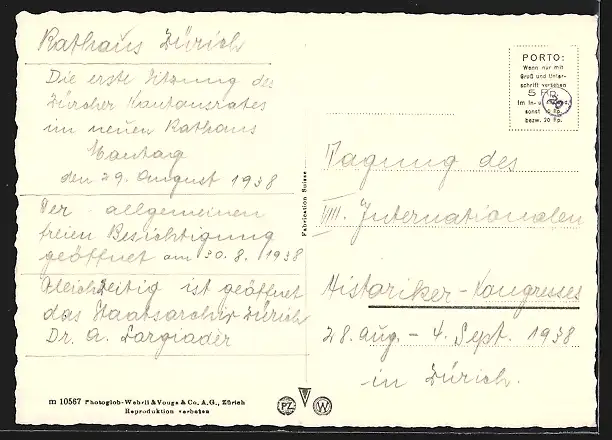 Rathaus Zürich
Die erste Sitzung des
Zürcher Kantonsrates
im neuen Rathaus
Montag
den 29. August 1938
Der allgemeinen
freien Besichtigung
geöffnet am 30. 8. 1938
Gleichzeitig ist geöffnet
das Staatsarchiv Zürich
Dr. A. Largiader
m 10567 Photoglob-Wehrli & Vouga & Co. A.G., Zürich
Reproduktion verboten
Fabrication Suisse
PZ W
PORTO:
Wenn nur mit
Gruß und Unter-
schrift versehen
5 Rp.
Im In- u.
sonst 10 Rp.
bezw. 20 Rp.
Tagung des
VIII. Internationalen
Historiker-Kongresses
28. Aug. - 4. Sept. 1938
in Zürich.